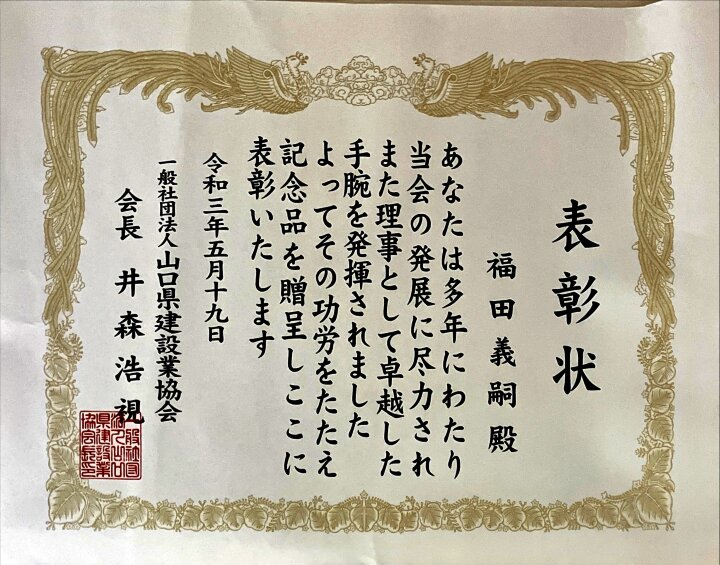 表彰状
福田義嗣殿
あなたは多年にわたり
当会の発展に尽力され
また理事として卓越した
手腕を発揮されました
よってその功労をたたえ
記念品を贈呈しここに
表彰いたします
令和三年五月十九日
一般社団法人山口県建設業協会
会長 井森浩視
一般社団
法人山口
県建設業
協会長印